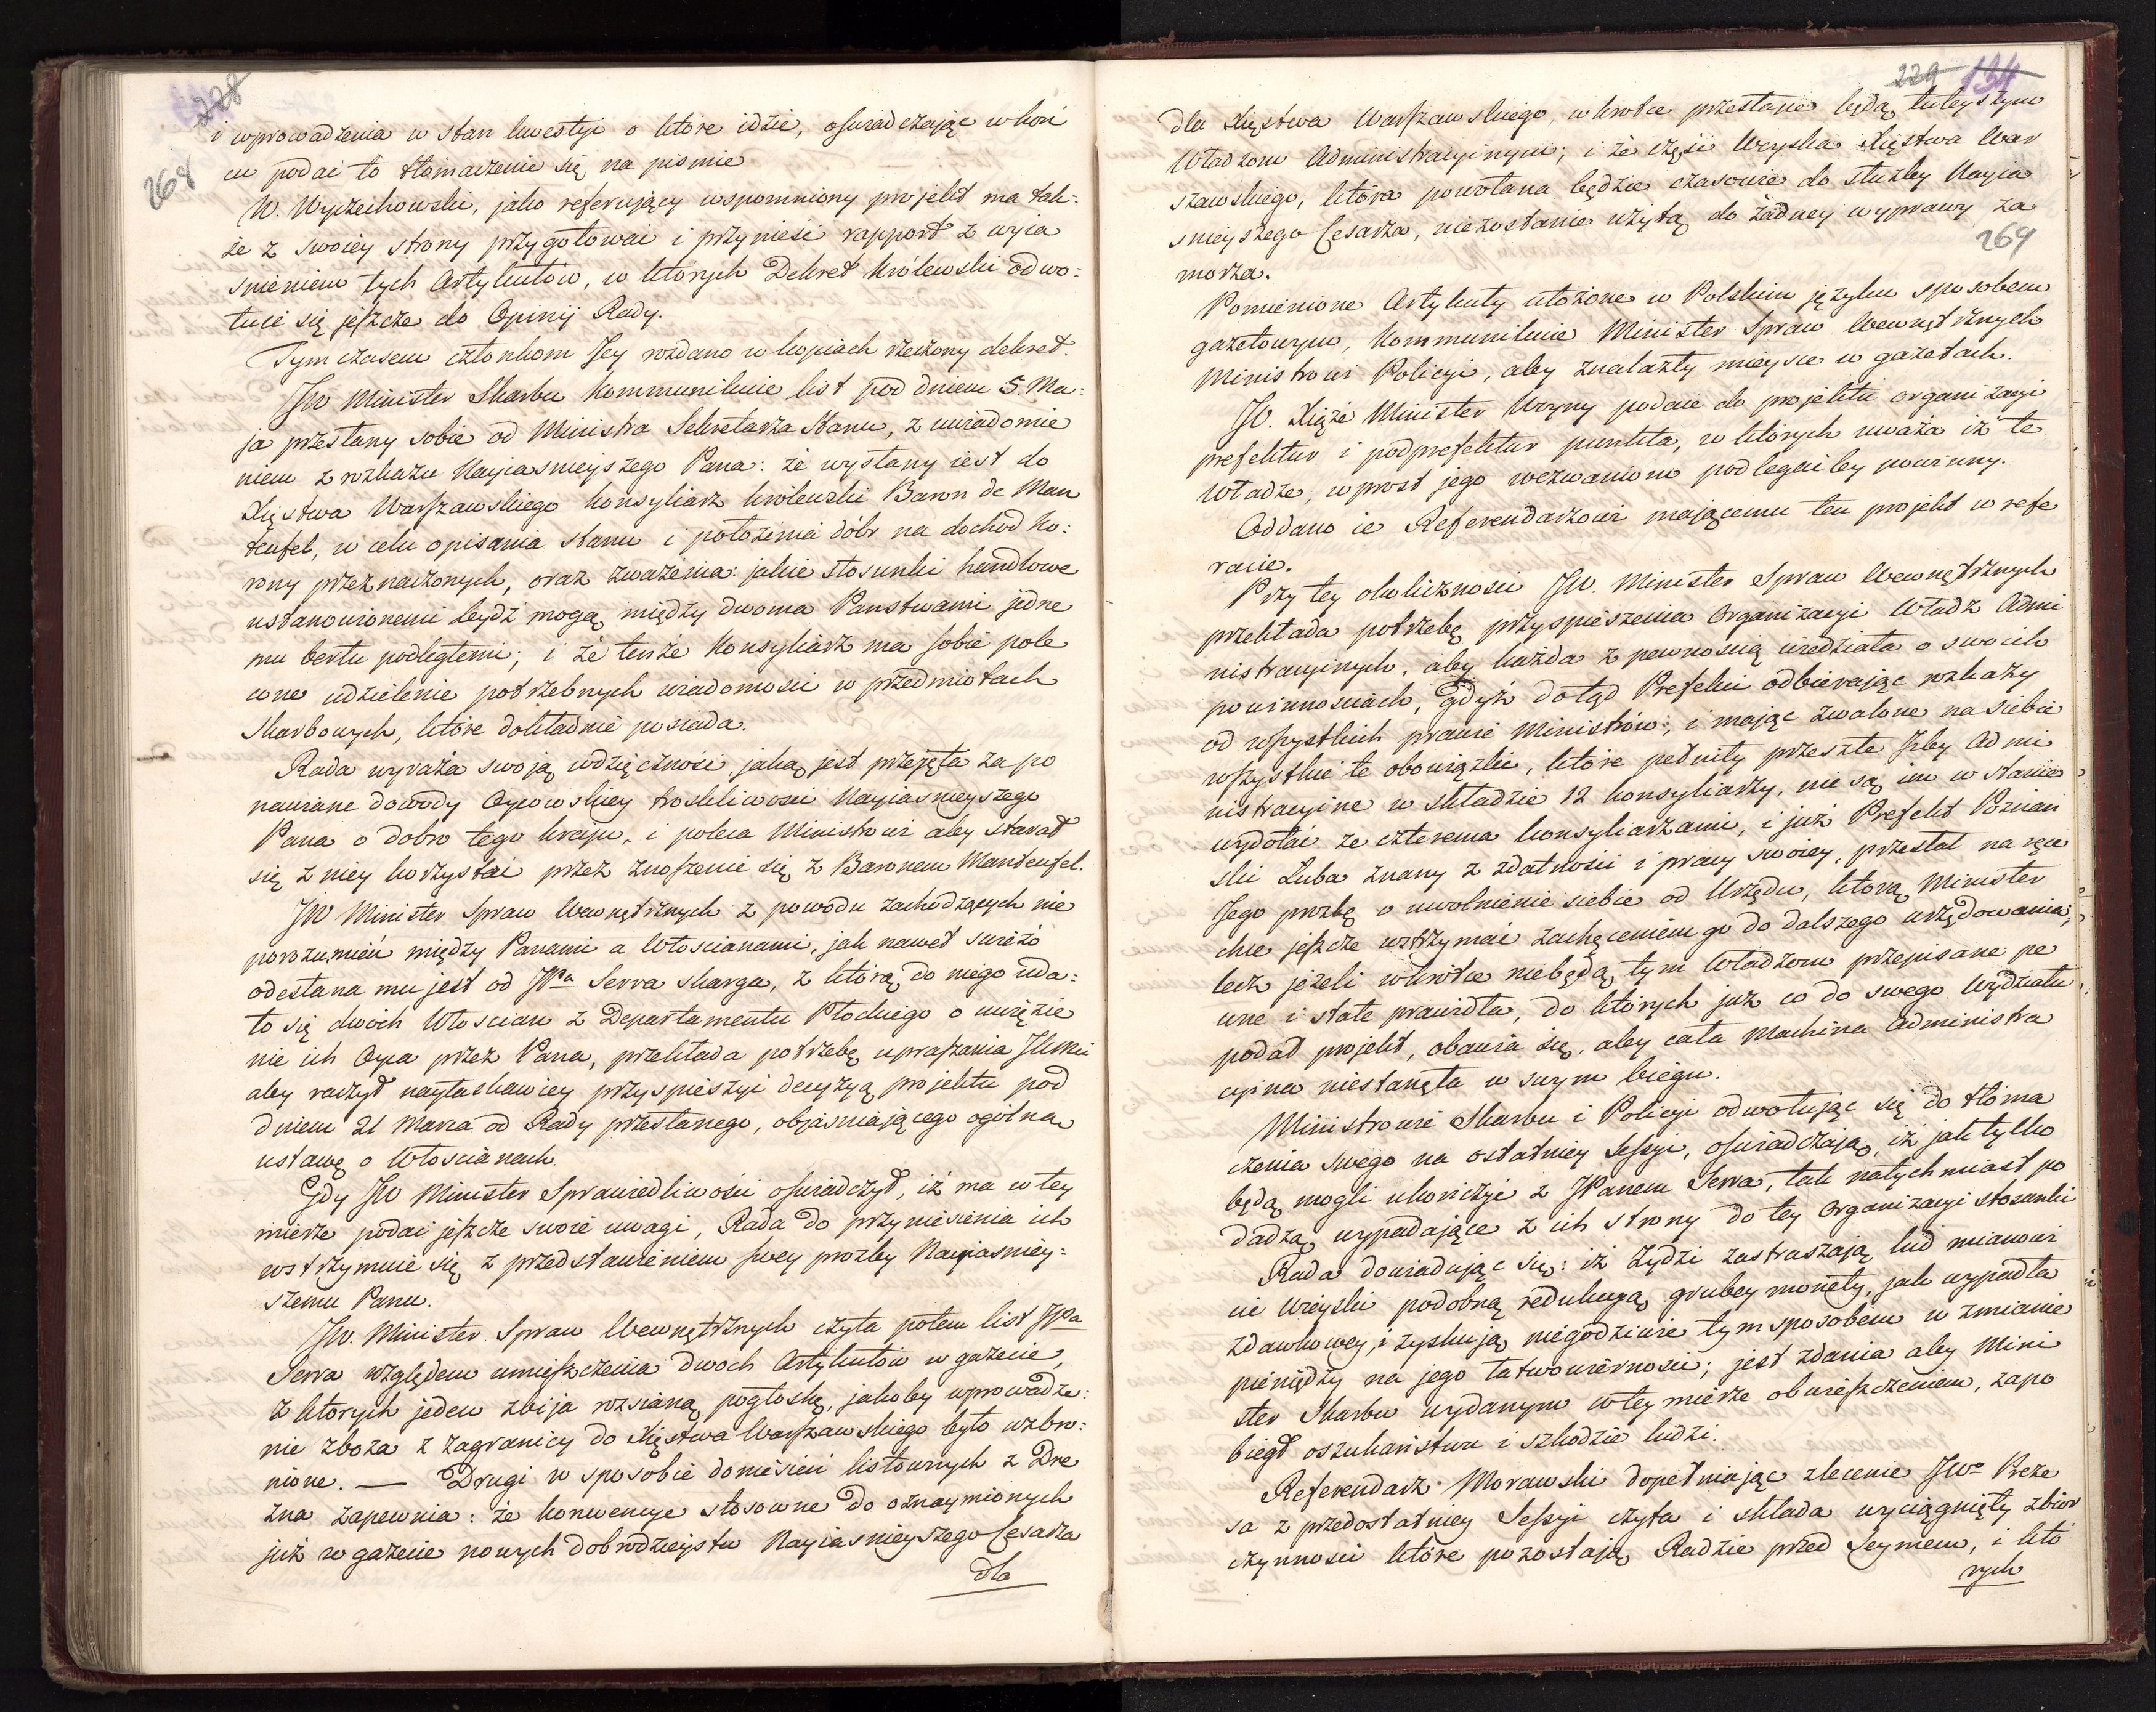 228
i wprowadzenia w stan kwestyi o które idzie, oświadczaiąc w koń
cu podać to tłomaczenie się na piśmie
268
W. Wyczechowski, jako referujący wspomniony projekt ma tak:
że z swoiey strony przygotować i przynieść rapport z wyia
śnieniem tych Artykułów, w których Dekret Królewski odwo:
łuie się jeszcze do Opinij Rady.
Tymczasem członkom Jey rozdano w kopiach rzeczony dekret.
JW Minister Skarbu kommunikuie list pod dniem 5. Ma:
ja przesłany sobie od Ministra Sekretarza Stanu, z uwiadomie
niem z rozkazu Nayiaśnieyszego Pana: że wysłany iest do
Xięstwa Warszawskiego konsyliarz królewski Baron de Man
teufel, w celu opisania stanu i położenia dóbr na dochod Ko:
rony przeznaczonych, oraz zważenia: jakie stosunki handlowe
ustanowionemi bydź mogą między dwoma Państwami jedne
mu berłu podległemi; i że tenże Konsyliarz ma sobie pole
cone udzielenie potrzebnych wiadomości w przedmiotach
Skarbowych, które dokładnie posiada.
Rada wyraża swoją wdzięczność jaką jest przejęta za po
nawiane dowody Oycowskiey troskliwości Nayiaśnieyszego
Pana o dobro tego kraju, i poleca Ministrowi aby starał
się z niey korzystać przez znoszenie się z Baronem Manteufel.
JW Minister Spraw Wewnętrznych z powodu zachodzących nie
porozumień między Panami a Włościanami, jak nawet świeżo
odesłana mu jest od JPa Serra skarga, z którą do niego uda:
ło się dwóch Włościan z Departamentu Płockiego o uwięzie
nie ich Oyca przez Pana, przekłada potrzebę upraszania JKMci
aby raczył nayłaskawiey przyspieszyć decyzyą projektu pod
dniem 21 Marca od Rady przesłanego, objaśniającego ogólną
ustawę o Włościanach.
Gdy JW Minister Sprawiedliwości oświadczył, iż ma w tey
mierze podać jeszcze swoie uwagi, Rada do przyniesienia ich
wstrzymuie się z przedstawieniem swey prozby Nayiaśniey:
szemu Panu.
JW. Minister Spraw Wewnętrznych czyta potem list JPa
Serra względem umieszczenia dwoch Artykułów w gazecie,
z których jeden zbija rozsianą pogłoskę, jakoby wprowadze:
nie zboża z zagranicy do Xięstwa Warszawskiego było wzbro:
nione. — Drugi w sposobie doniesień listownych z Dre
zna zapewnia: że konwencye stosowne do oznaymionych
już w gazecie nowych dobrodzieystw Nayiaśnieyszego Cesarza
dla
229 134
dla Xięstwa Warszawskiego, wkrotce przesłane będą tuteyszym
Władzom Administracyinym; i że część Woyska Xięstwa War
szawskiego, która powołana będzie czasowie do służby Nayia
śnieyszego Cesarza, niezostanie użytą do żadney wyprawy za
morza.
269
Pomienione Artykuły ułożone w Polskim języku sposobem
gazetowym, Kommunikuie Minister Spraw Wewnętrznych
Ministrowi Policyi, aby znalazły mieysce w gazetach.
JO. Xiąże Minister Woyny podaie do projektu organizacyi
prefektur i podprefektur punkta, w których uważa iż te
Władze, wprost jego wezwaniom podlegać by powinny.
Oddano ie Referendarzowi mającemu ten projekt w refe
racie.
Przy tey okoliczności JW. Minister Spraw Wewnętrznych
przekłada potrzebę przyspieszenia Organizacyi Władz Admi
nistracyinych, aby każda z pewnością wiedziała o swoich
powinnościach, Gdyż dotąd Prefekci odbierając rozkazy
od wszystkich prawie Ministrów; i mając zwalone na siebie
wszystkie te obowiązki, które pełniły przeszłe Izby Admi
nistracyine w składzie 12 konsyliarzy, nie są im w stanie
wydołać ze czterema konsyliarzami, i już Prefekt Poznań
ski Łuba znany z zdatności i pracy swoiey, przesłał na ręce
Jego prozbę o uwolnienie siebie od Urzędu, którą Minister
chce jeszcze wstrzymać zachęceniem go do dalszego urzędowania;
lecz jeżeli wkrótce niebędą tym Władzom przepisane pe
wne i stałe prawidła, do których już co do swego Wydziału
podał projekt, obawia się, aby cała Machina Administra
cyina niestanęła w swym biegu.
Ministrowie Skarbu i Policyi odwołując się do tłoma
czenia swego na ostatniey Sessyi, oświadczają, iż jak tylko
będą mogli ukończyć z JPanem Serra, tak natychmiast po
dadzą wypadające z ich strony do tey Organizacyi stosunki
Rada dowiadując się: iż Żydzi zastraszają lud mianowi
cie wieyski podobną redukcyą grubey monety, jak wypadła
zdawkowey, i zyskują niegodziwie tym sposobem w zmianie
pieniędzy na jego łatwowierności; jest zdania aby Mini
ster Skarbu wydanym w tey mierze obwieszczeniem, zapo
biegł oszukaństwu i szkodzie ludzi.
Referendarz Morawski dopełniając zlecenie JWo Preze
sa z przedostatniey Sessyi czyta i składa wyciągnięty zbior
czynności które pozostają Radzie przed Seymem, i któ
rych